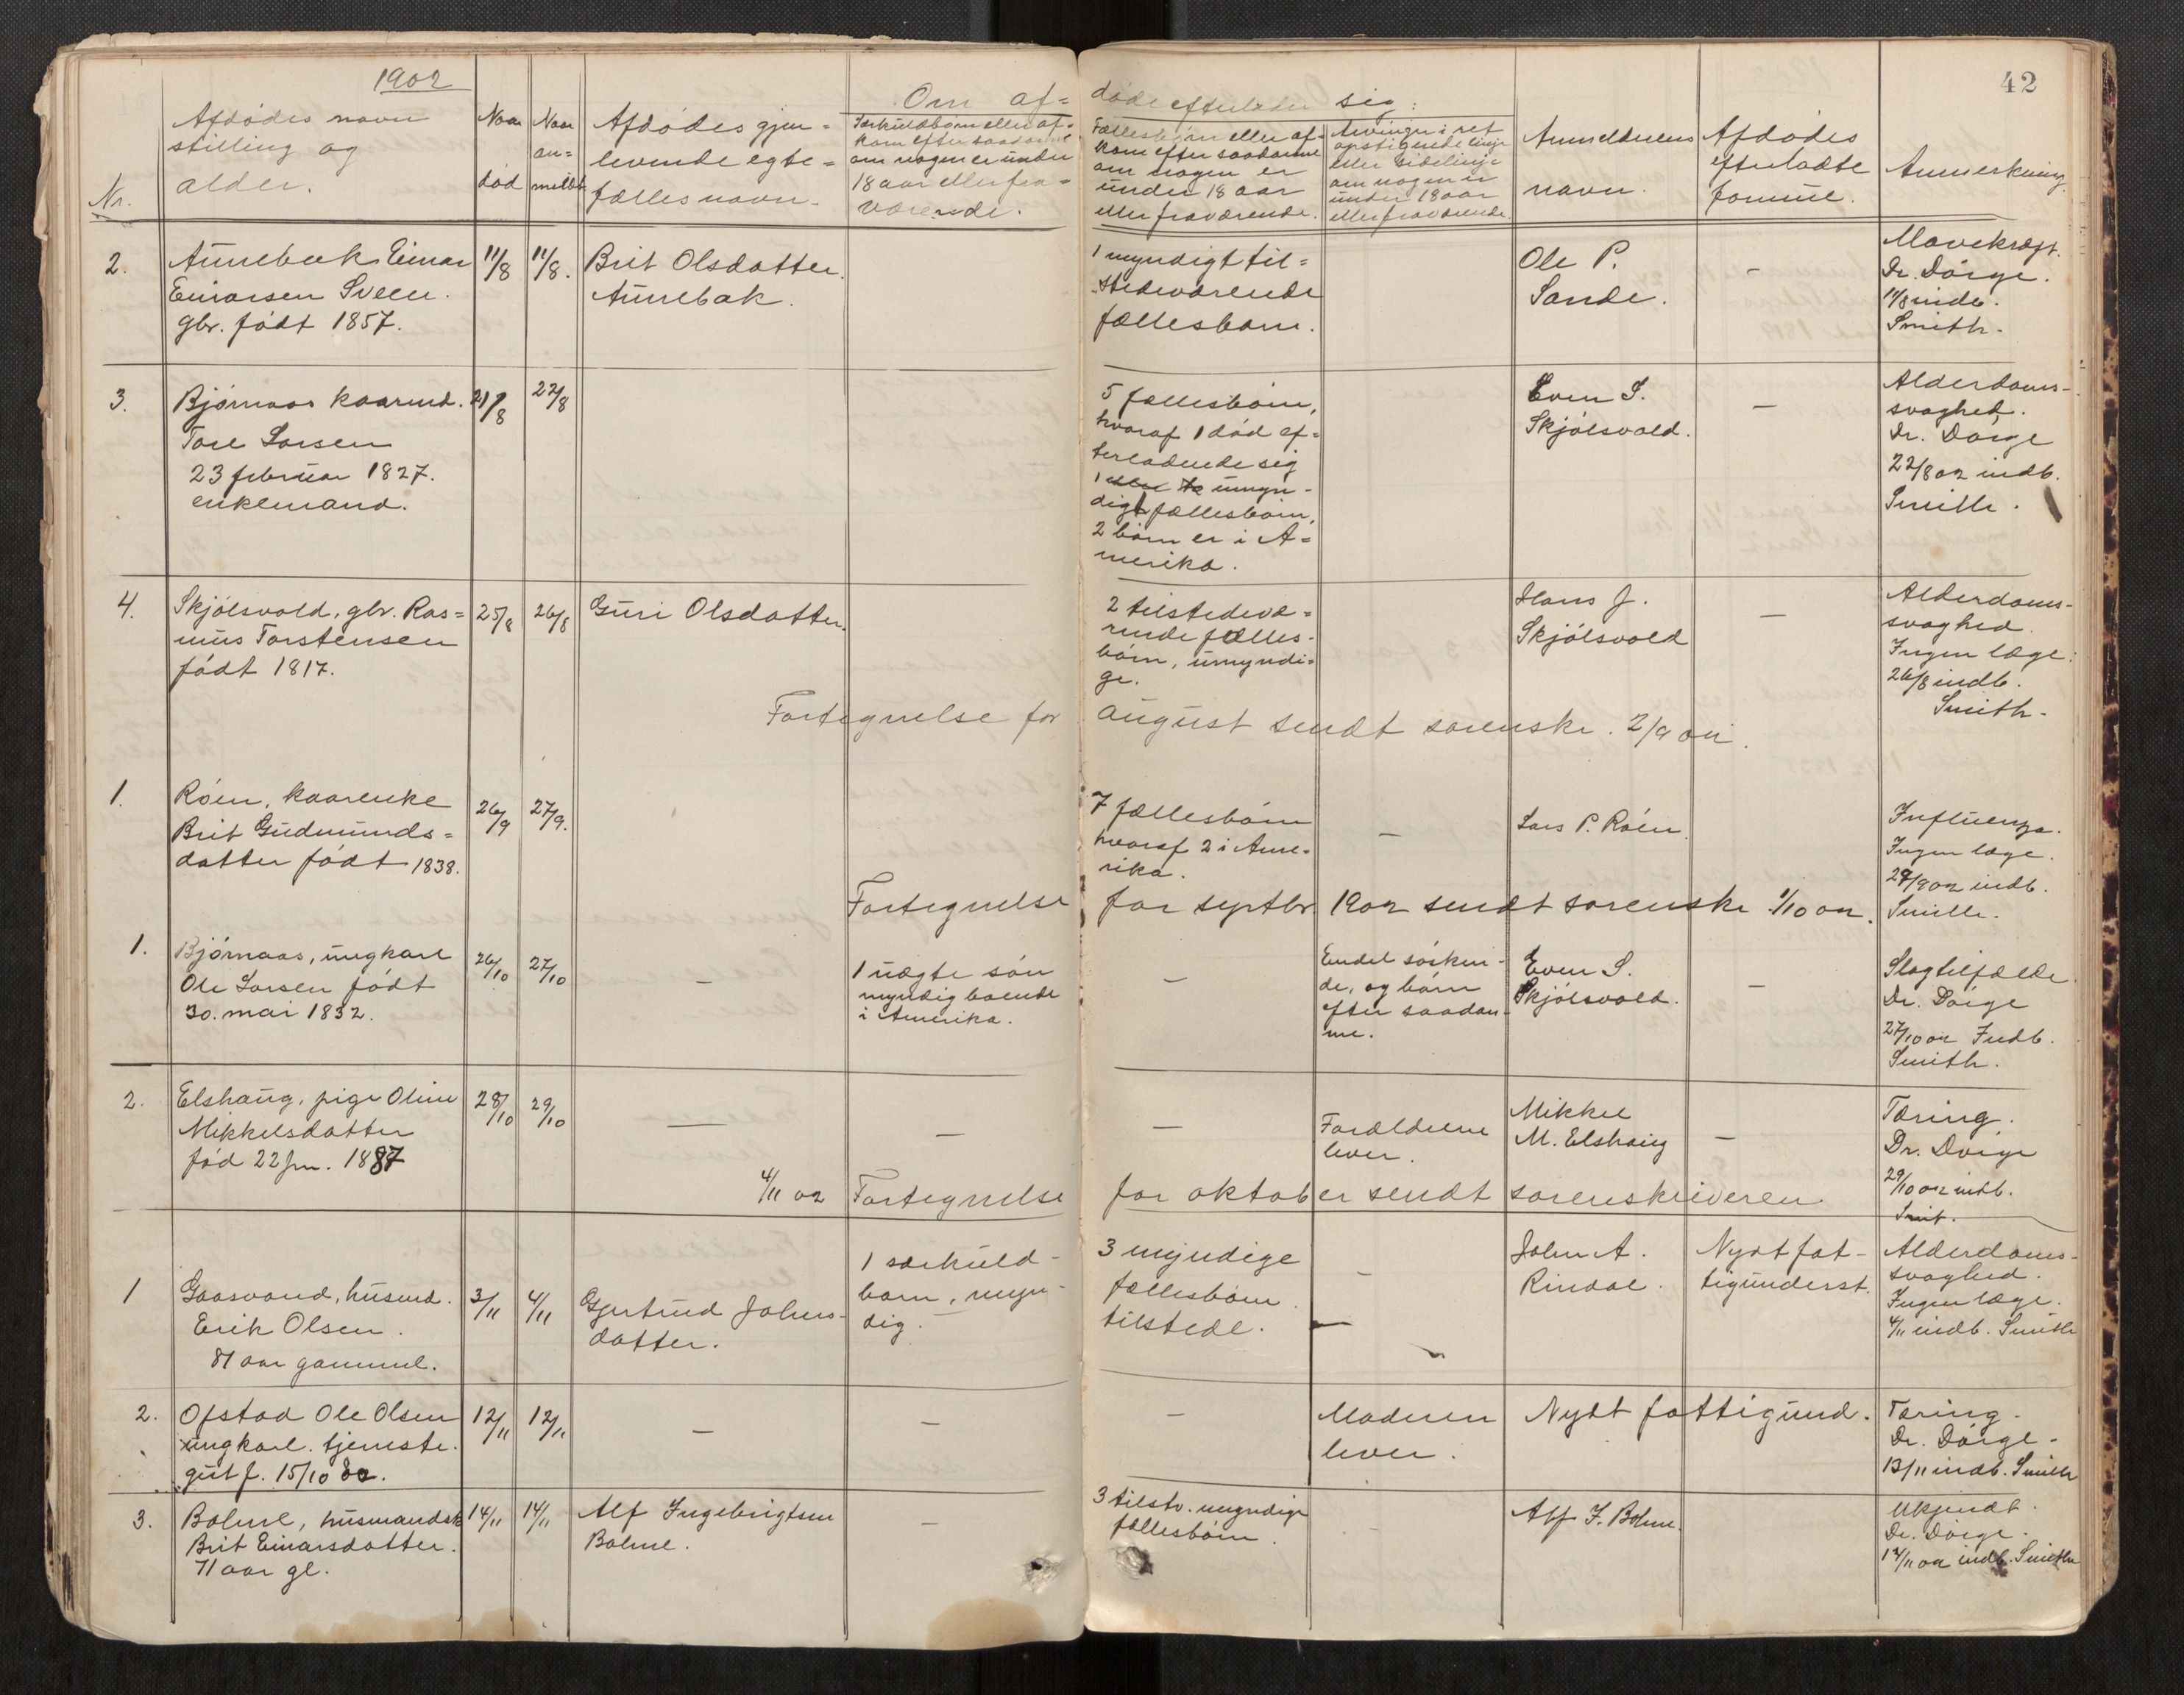 42
1902
Nr.
Afdødes navn
stilling og
alder.
Naar
død
Naar
an=
meldt
Afdødes gjen=
levende egte=
fælles navn.
Om af=
døde efterlader sig:
Særkuldbørn eller af=
kom efter saadanne
om nogen er under
18 aar eller fra=
værende.
Fællesbørn eller af=
kom efter saadanne
om nogen er
under 18 aar
eller fraværende.
Arvinger i ret
opstigende linje
eller sidelinje
om nogen er
under 18 aar
eller fraværende.
Anmelderens
navn.
Afdødes
efterladte
formue.
Anmerkning.
2.
Annebak Einar
Einarsen Sveen.
gbr. født 1857.
11/8
11/8.
Brit Olsdatter
Annebak.
1 myndigt til=
stedeværende
fællesbarn.
Ole P.
Sande.
-
Mavekræft.
Dr. Dørge.
11/8 indb.
Smith.
3.
Bjørnaas kaarmd.
Tore Larsen
23 februar 1827.
enkemand.
21/8
22/8
5 fællesbørn,
hvoraf 1 død ef=
terladende sig
1 umyn-
digt fællesbarn,
2 børn er i A=
merika.
Even S.
Skjølsvold.
-
Alderdoms-
svaghed.
Dr. Dørge
22/8 02 indb.
Smith.
4.
Skjølsvold, gbr. Ras=
mus Torstensen
født 1817.
25/8
26/8
Guri Olsdatter.
2 tilstedevæ=
rende fælles-
børn, umyndi=
ge.
Hans J.
Skjølsvold
-
Alderdoms-
svaghed.
Ingen læge.
26/8 indb.
Smith.
Fortegnelse for august sendt sorenskr. 2/9 02.
1.
Røen, kaarenke
Brit Gudmunds=
datter født 1838.
26/9
27/9.
7 fællesbørn
hvoraf 2 i Ame-
rika.
-
Lars P. Røen.
Influenza.
Ingen læge.
27/9 02 indb.
Smith.
Fortegnelse for septbr 1902 sendt sorenskr 1/10 02.
1.
Bjørnaas, ungkarl
Ole Larsen født
30. mai 1832.
26/10
27/10
-
1 uægte søn
myndig boende
i Amerika.
-
Endel søsken-
de, og børn
efter saadan-
ne.
Even S.
Skjølsvold.
-
Slagtilfælde.
Dr. Dørge
27/10 02 Indb.
Smith.
2.
Elshaug, pige Oline
Mikkelsdatter
fød 22 jan. 1887
28/10
29/10
-
-
-
Forældrene
lever.
Mikkel
M. Elshaug
-
Tæring.
Dr. Dørge
29/10 02 indb.
Smit.
4/11 02 Fortegnelse for oktober sendt sorenskriveren
1
Gaasvand, husmd.
Erik Olsen.
81 aar gammel.
3/11
4/11
Gjertrud Johns-
datter.
1 særkuld-
barn, myn-
dig.
3 myndige
fællesbørn
tilstede.
-
John A.
Rindal.
Nydt fat-
tigunderst.
Alderdoms-
svaghed.
Ingen læge.
4/11 indb. Smith
2.
Ofstad Ole Olsen
ungkarl. tjeneste-
gut f. 15/10 82.
12/11
12/11
-
-
-
Moderen
lever.
Nydt fattigund.
Tæring.
Dr. Dørge.
13/11 indb. Smith
3.
Bolme, husmandsk
Brit Einarsdatter.
71 aar gl.
14/11
14/11
Alf Ingebrigtsen
Bolme.
-
3 tilst. myndige
fællesbørn.
-
Alf I. Bolme.
Ukjendt.
Dr. Dørge.
14/11 02 indb. Smith